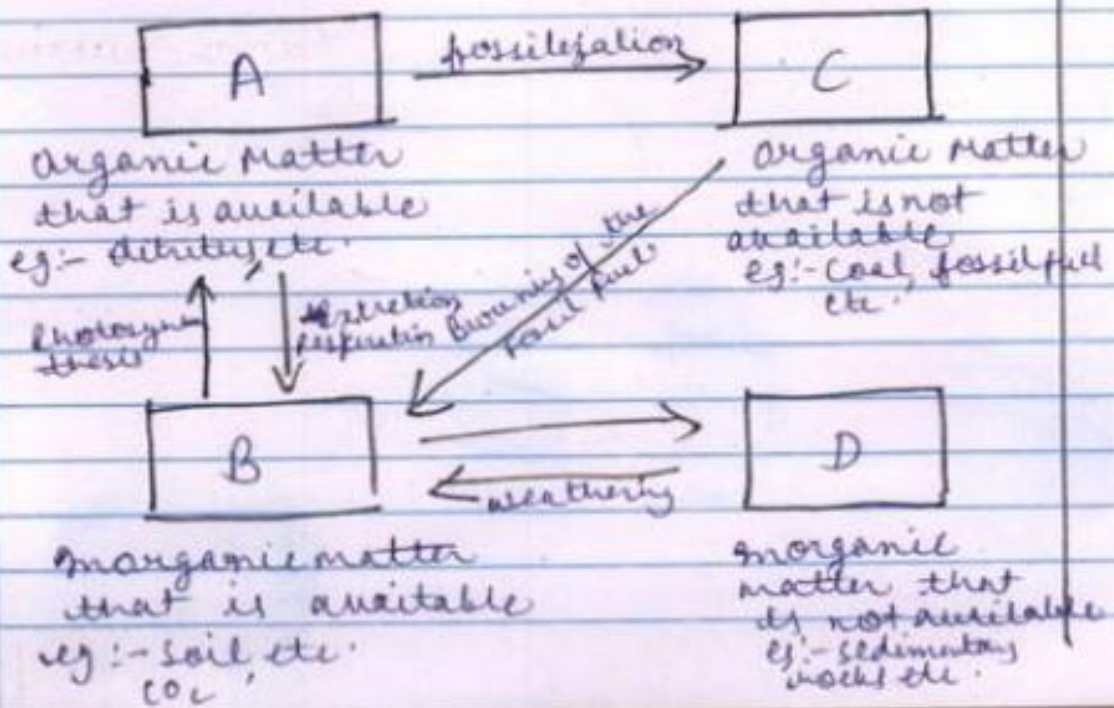 A
fossilization
C
organic Matter
that is available
eg:- detritus, etc.
organic Matter
that is not
available
eg:- Coal, fossil fuel
etc.
Photosyn
thesis
Extretion
respiration
Burning of the
Fossil fuel
B
weathering
D
Inorganic matter
that is available
eg:- Soil, etc.
CO2
Inorganic
matter that
is not available
eg:- sedimentary
rocks etc.